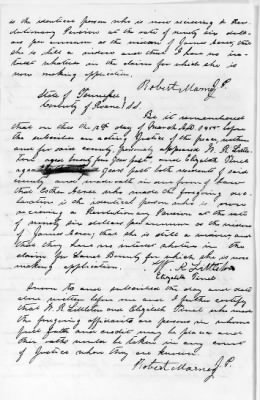 is the identical person who is now receiving a Rev-
olutionary Pension at the rate of ninety six dollars
per annum as the widow of James Acree, that
she still a widow and that I have no in-
terest whatever in the claim for which she is
now making application.
Robert Marney J.P.
State of Tennessee
County of Roane Sd
Be it remembered
that on this the 12th day of March A.D. 1855 before
the subscriber an acting Justice of the peace within
and for said county personally appeared W. R. Little-
ton aged years past and Elizabeth
aged years past both resident of said
county who made oath in due form of
that Esther Acree who made the foregoing dec-
laration is the identical person who is now
receiving a Revolutionary Pension at the rate
of ninety six dollars per annum as the widow
of James Acree, that she is still a widow and
that they have no interest whatever in the
claim for Land Bounty for which she is now
making application.
W. R. Littleton
Elizabeth
Sworn to and subscribed the day and date
above written before me and I further certify
that W. R. Littleton and Elizabeth who made
the foregoing affidavits are persons in whom
full faith and credit may be placed and
their oaths would be taken in any court
of Justice where they are known.
Robert Marney J.P.